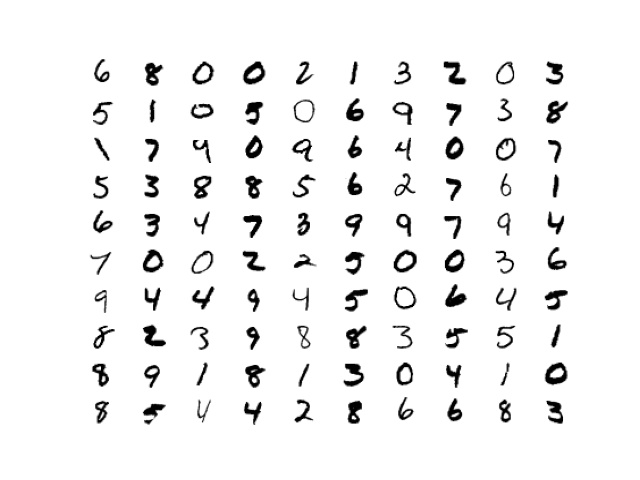 6 8 0 0 2 1 3 2 0 3
5 1 0 5 0 6 9 7 3 8
1 7 4 0 9 6 4 0 0 7
5 3 8 8 5 6 2 7 6 1
6 3 4 7 3 9 9 7 9 4
7 0 0 2 2 5 0 0 3 6
9 4 4 9 4 5 0 6 4 5
8 2 3 9 8 8 3 5 5 1
8 9 1 8 1 3 0 4 1 0
8 5 4 4 2 8 6 6 8 3